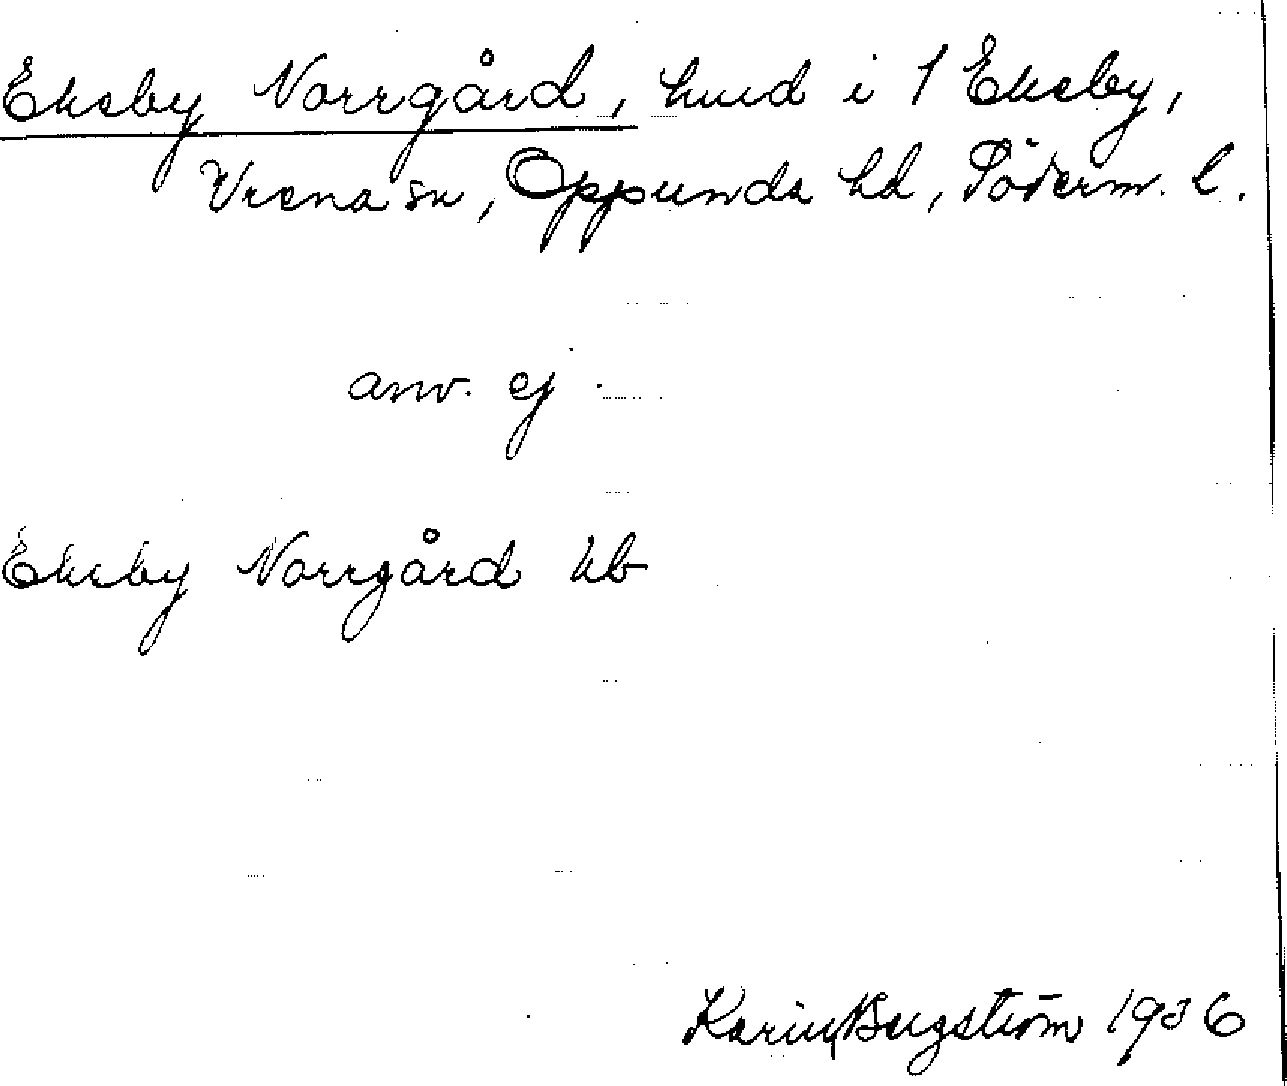 Eksby Norrgård, hmd i 1 Eksby,
Vrena sn, Oppunda hd, Söderm. l.
anv. ej
Eksby Norrgård kb
Karin Bergström 1936